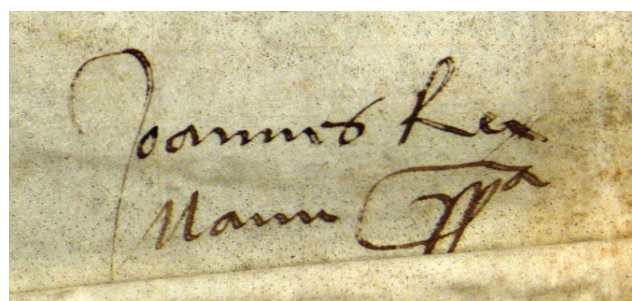 Joannes Rex
Manu ppa